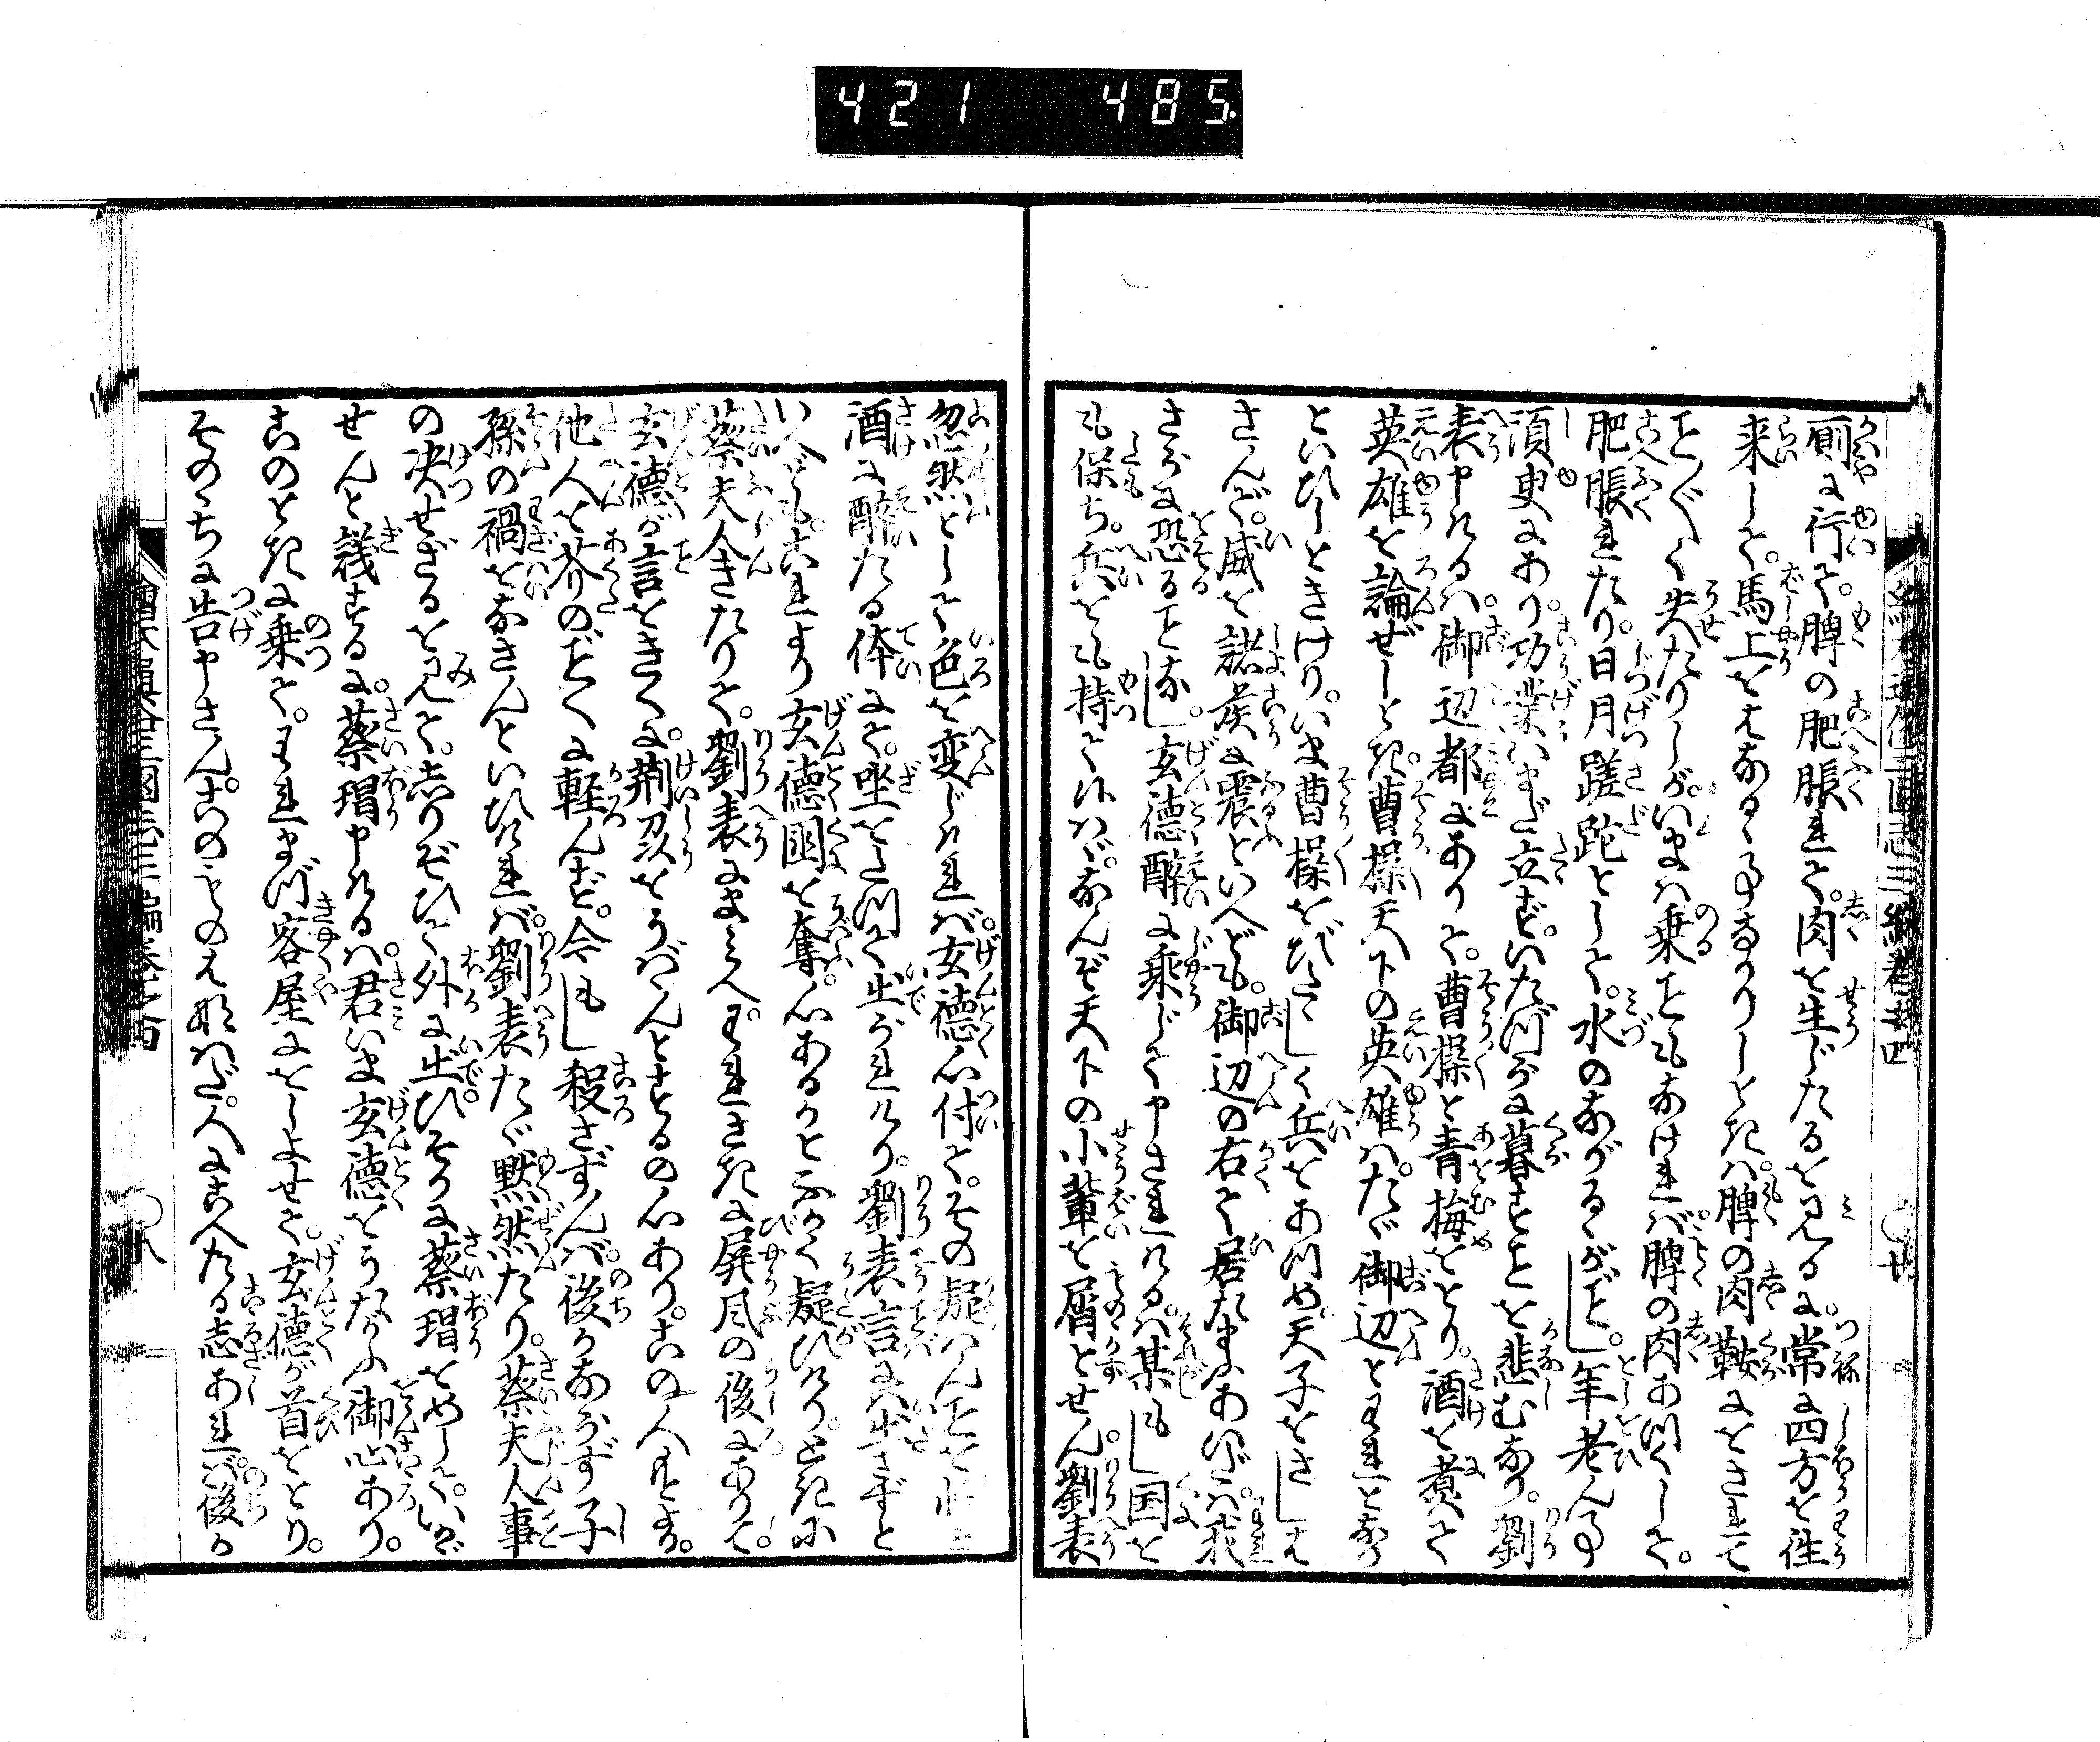 421 485
厠に行て。脾の肥脹れて。肉を生じたるを見る。常に四方を往
来して。馬上をはなるゝ事なかりしときハ。脾の肉鞍にをされて
ことごとく失たりしが。いまハ乗こともなけれバ。脾の肉あつくして。
肥脹れたり。日月蹉跎として。水のながるゝがごとし。年老ん事
須臾にあり。功業いまだ立ず。いたづらに暮すことを悲むなり。劉
表申けるハ。御辺都にありて。曹操と青梅をとり。酒を煮て
英雄を論ぜしとき。曹操天下の英雄ハ。たゞ御辺とわれとなり
といひしときけり。いま曹操をびたゝしく兵をあつめ。天子をさしは
さんで。威を諸侯に震といへども。御辺の右にて居たまふあいだハ。我
さらに恐るゝことなし。玄徳酔に乗じて申されけるハ。某もし国を
も保ち。兵をも持て候ハゞ。なんぞ天下の小輩を屑とせん。劉表
忽然として色を変じけれバ。玄徳心付て。その疑ハんことを
酒に酔たる体にて。坐をたつて出られけり。劉表言には出さずと
いへども。これより玄徳国を奪ふ。心あるかとふかく疑ひけり。ときに
蔡夫人きたりて。劉表にまみへ。われさきに屏風の後にありて。
玄徳が言をきくに。荊州をうばゝんとするの心あり。この人つねに。
他人を芥のごとくに軽んず。今もし殺さずんバ。後かならず子
孫の禍をなさんといひけれバ。劉表たゞ黙然たり。蔡夫人事
の决せざるを見て。しりぞひて外に出。ひそかに蔡瑁をめして。いかゞ
せんと議するに。蔡瑁申けるハ。君いま玄徳をうたがふ御心あり。
このときに乗て。われまづ客屋にをしよせて。玄徳が首をとり。
そのゝちに告申さん。このものは